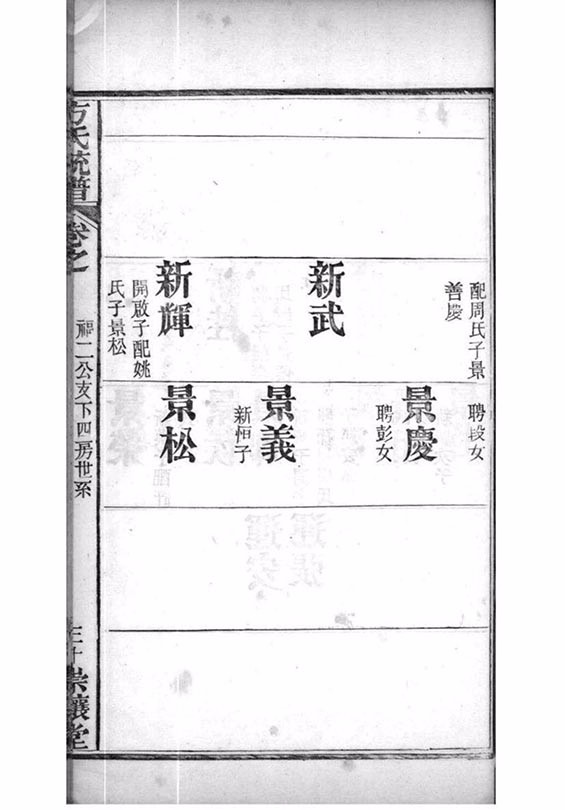 配周氏子景
善慶
新武
新輝
開啟子配姚
氏子景松
聘段女
景慶
聘彭女
景義
新恒子
景松
方氏統譜
卷之
福二公支下四房世系
三十
崇讓堂